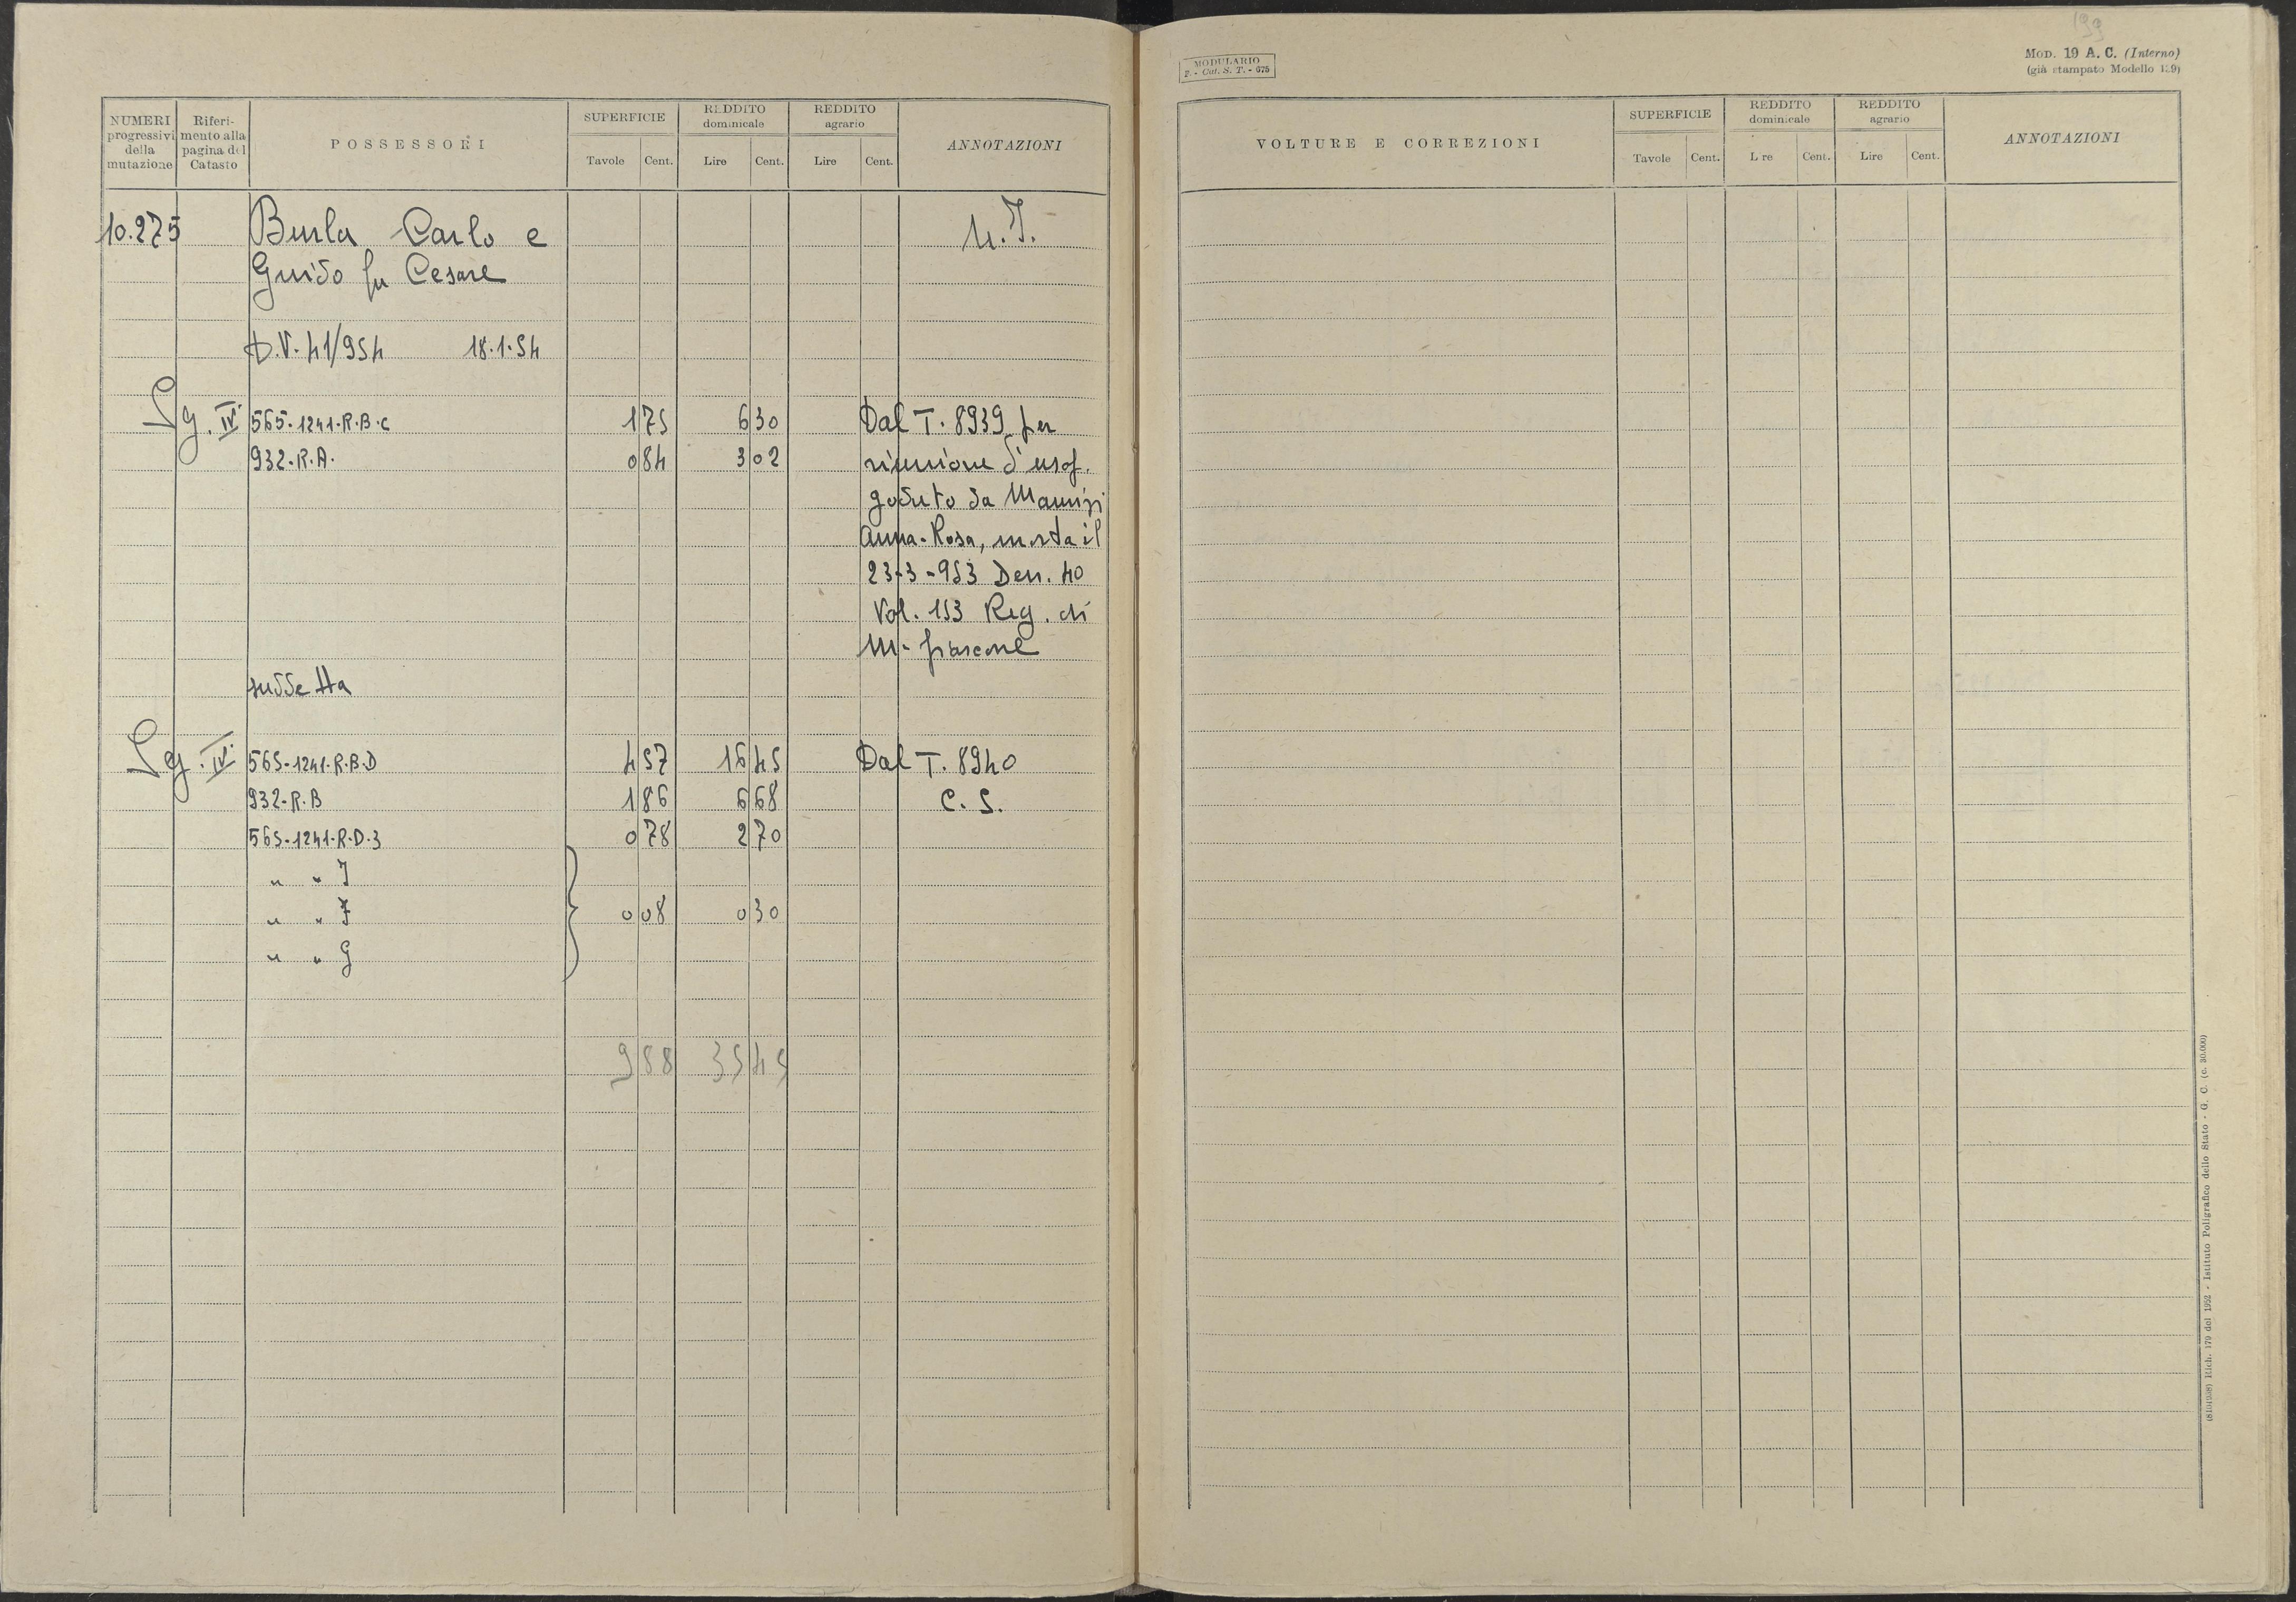 199
MODULARIO
F. - Cat. S. T. - 675
MOD. 19 A. C. (Interno)
(già stampato Modello 139)
NUMERI progressivi della mutazione
Riferi-mento alla pagina del Catasto
POSSESSORI
SUPERFICIE
Tavole Cent.
REDDITO dominicale
Lire Cent.
REDDITO agrario
Lire Cent.
ANNOTAZIONI
10.275 Burla Carlo e
Guido fu Cesare
D.V. 41/954 18.1.54
Sg. IV 565-1241-R.B.C 1 75 6 30 Dal T. 8939 per
932-R.A. 0 84 3 02 riunione d'usof.
goduto da Maurizi
Anna-Rosa, morta il
23-3-953 Den. 40
Vol. 153 Reg. di
M-fiascone
suddetta
Sg. IV 565-1241-R.B.D 4 57 16 45 Dal T. 8940
932-R.B 1 86 6 68 C.S.
565-1241-R.D.3 0 78 2 70
" " I
" " F 0 08 0 30
" " G
9 88 35 45
VOLTURE E CORREZIONI
SUPERFICIE
Tavole Cent.
REDDITO dominicale
L re Cent.
REDDITO agrario
Lire Cent.
ANNOTAZIONI
Rich. 179 del 1952 - Istituto Poligrafico dello Stato - G. C. (c. 30.000)